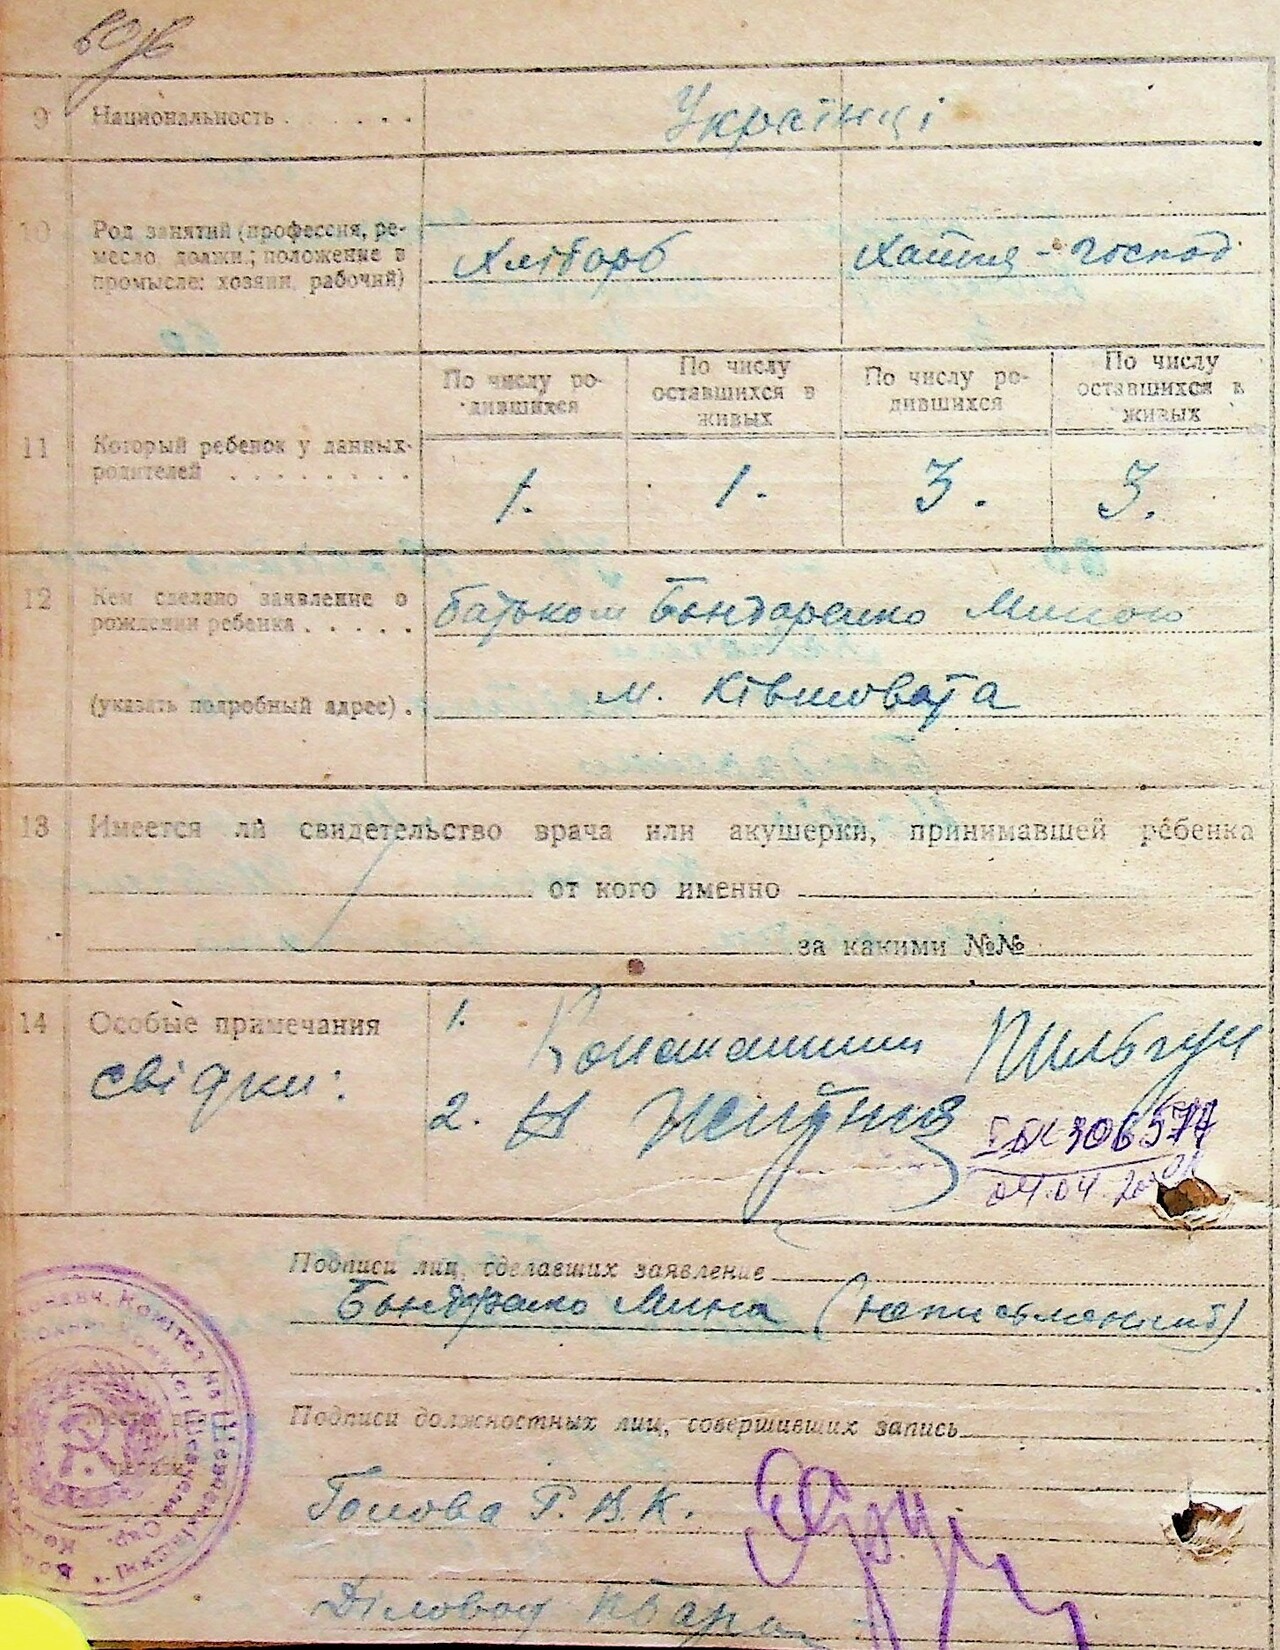 9 Национальность . . . . . . Українці
10 Род занятий (профессия, ре-
месло, должн.; положение в
промысле: хозяин, рабочий)
Хлібороб Хатня - господ.
По числу ро-
дившихся
По числу
оставшихся в
живых
По числу ро-
дившихся
По числу
оставшихся в
живых
11 Который ребенок у данных
родителей . . . . . . . .
1. 1. 3. 3.
12 Кем сделано заявление о
рождении ребенка . . . . .
батьком Бондаренко Миною
(указать подробный адрес) .
м. Ківшовата
13 Имеется ли свидетельство врача или акушерки, принимавшей ребенка
от кого именно
за какими №№
14 Особые примечания
свідки:
1.
2.
306577
04.04
Подписи лиц, сделавших заявление
Бондаренко Мина (неписьменний)
Подписи должностных лиц, совершивших запись
Голова Р.В.К.
Діловод